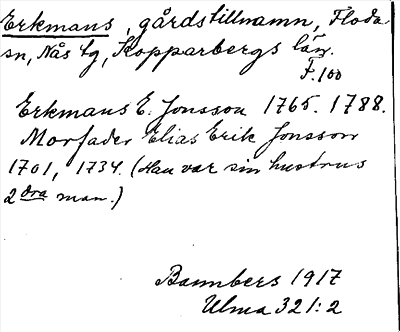 Erkmans, gårdstillnamn, Floda
sn, Nås tg, Kopparbergs län.
F. 100
Erkmans E. Jonsson 1765. 1788.
Morfader Elias Erik Jonsson
1701, 1734. (Han var sin hustrus
2dra man.)
Bannbers 1917
Ulma 321:2